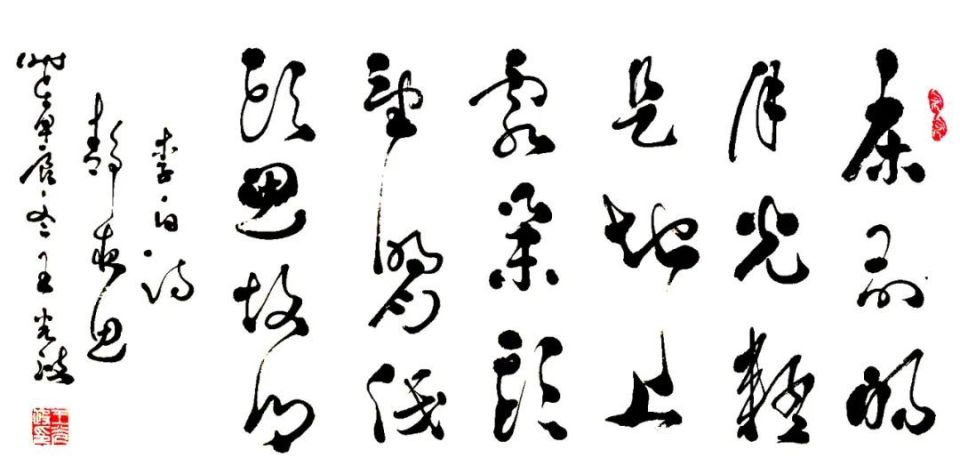 床前明
月光疑
是地上
霜举头
望明月低
头思故乡
李白诗
静夜思
甲辰冬王光